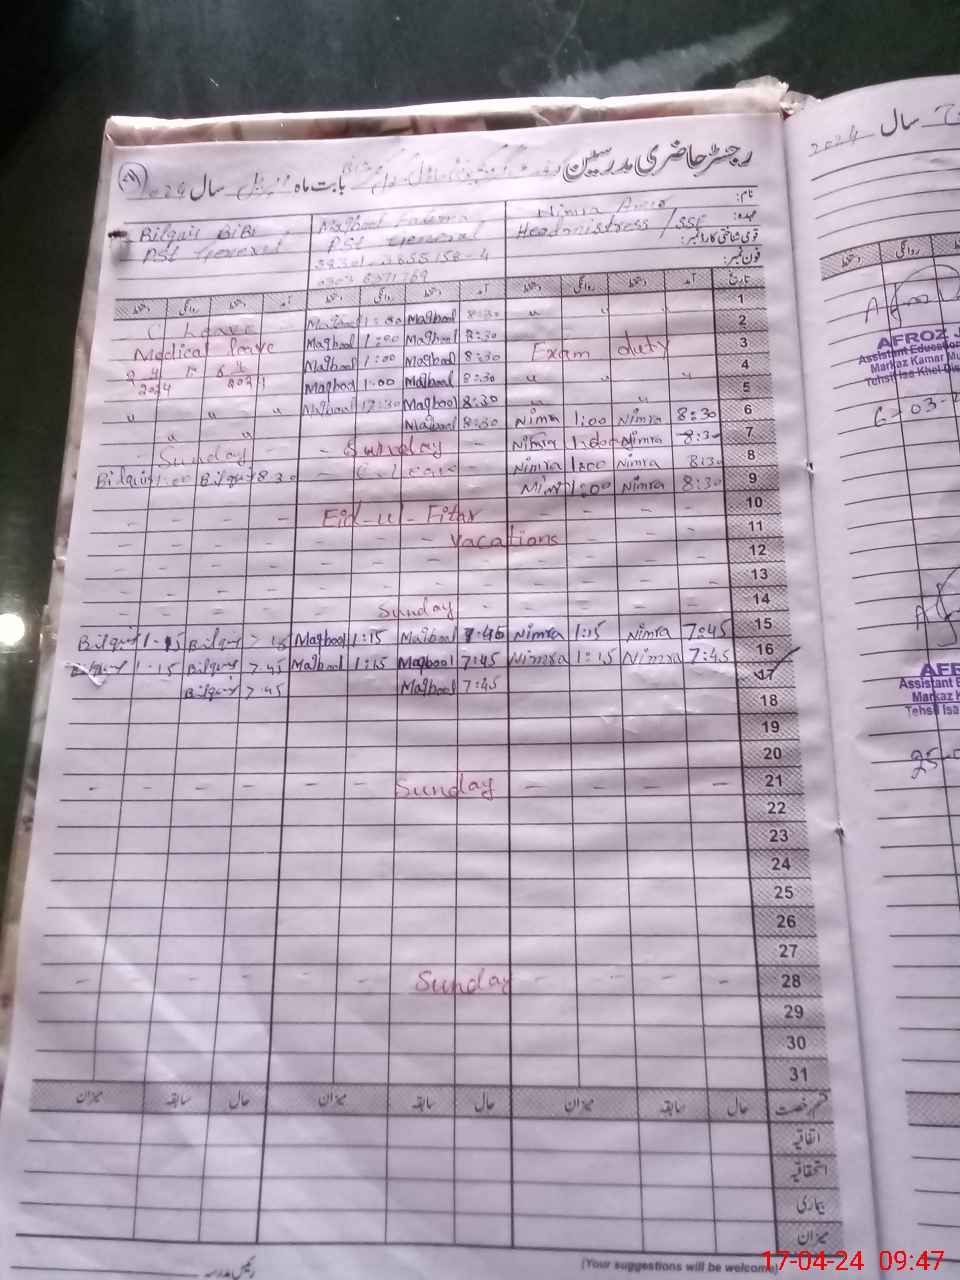 رجسٹر حاضری مدرسین
بابت ماہ اپریل سال 2024
نام:
عہدہ:
قومی شناختی کارڈ نمبر:
فون نمبر:
Nimra
Headmistress / SSE
Maqbool Fatema
PST General
38301-3655158-4
Bilquis BiBi
PST General
تاریخ آمد دستخط روانگی دستخط آمد دستخط روانگی دستخط آمد دستخط روانگی دستخط
1 " " Maqbool 1:00 Maqbool 8:30 C Leave
2 Maqbool 1:00 Maqbool 8:30 Medical leave
3 Exam duty Maqbool 1:00 Maqbool 8:30
4 " " Maqbool 1:00 Maqbool 8:30 2024
5 " Maqbool 12:30 Maqbool 8:30 " " "
6 Nimra 1:00 Nimra 8:30 Maqbool 8:30 " "
7 Nimra 1:00 Nimra 8:30 - Sunday - - Sunday -
8 Nimra 1:00 Nimra 8:30 - C. Leave - Bilquis 1:00 Bilquis 8:30
9 Nimra 1:00 Nimra 8:30
10 - - - Eid-ul-Fitar - - -
11 - - - Vacations - - -
12 - - -
13 - - -
14 - - - Sunday - - -
15 Bilquis 1:15 Bilquis 7:45 Maqbool 1:15 Maqbool 7:45 Nimra 1:15 Nimra 7:45
16 Bilquis 1:15 Bilquis 7:45 Maqbool 1:15 Maqbool 7:45 Nimra 1:15 Nimra 7:45
17 Bilquis 7:45 Maqbool 7:45
18
19
20
21 - - - Sunday - - -
22
23
24
25
26
27
28 - - - Sunday - - -
29
30
31
قسم رخصت حال سابقہ میزان حال سابقہ میزان حال سابقہ میزان
اتفاقیہ
استحقاقیہ
بیماری
میزان
رئیس مدرسہ
(Your suggestions will be welcome)
2024 سال
روانگی دستخط
AFROZ J
Assistant Education
Markaz Kamar Mu
Tehsil Isa Khel Dis
6-03-2
AFR
Assistant E
Markaz K
Tehsil Isa
25-0
17-04-24 09:47